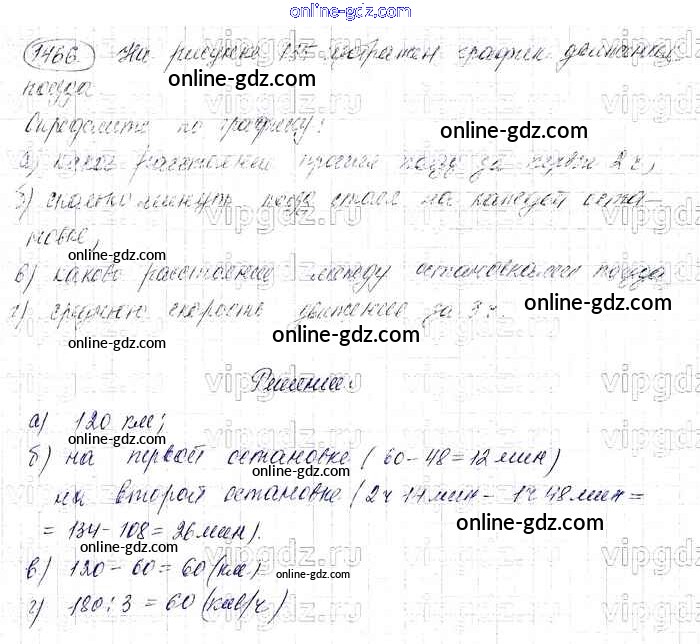 online-gdz.com
1466 На рисунке 155 изображен график движения
поезда
online-gdz.com
Определите по графику: online-gdz.com
а) какое расстояние прошел поезд за первые 2 ч,
б) сколько минут поезд стоял на каждой оста-
новке,
online-gdz.com
в) каково расстояние между остановками поезда
г) среднюю скорость движения за 3 ч.
online-gdz.com
online-gdz.com
online-gdz.com
Решение:
а) 120 км;
online-gdz.com
б) на первой остановке (60-48=12 мин)
online-gdz.com
на второй остановке (2ч 14мин - 1ч 48мин =
= 134-108 = 26мин).
online-gdz.com
online-gdz.com
в) 120-60 = 60 (км)
online-gdz.com
г) 180:3 = 60 (км/ч)